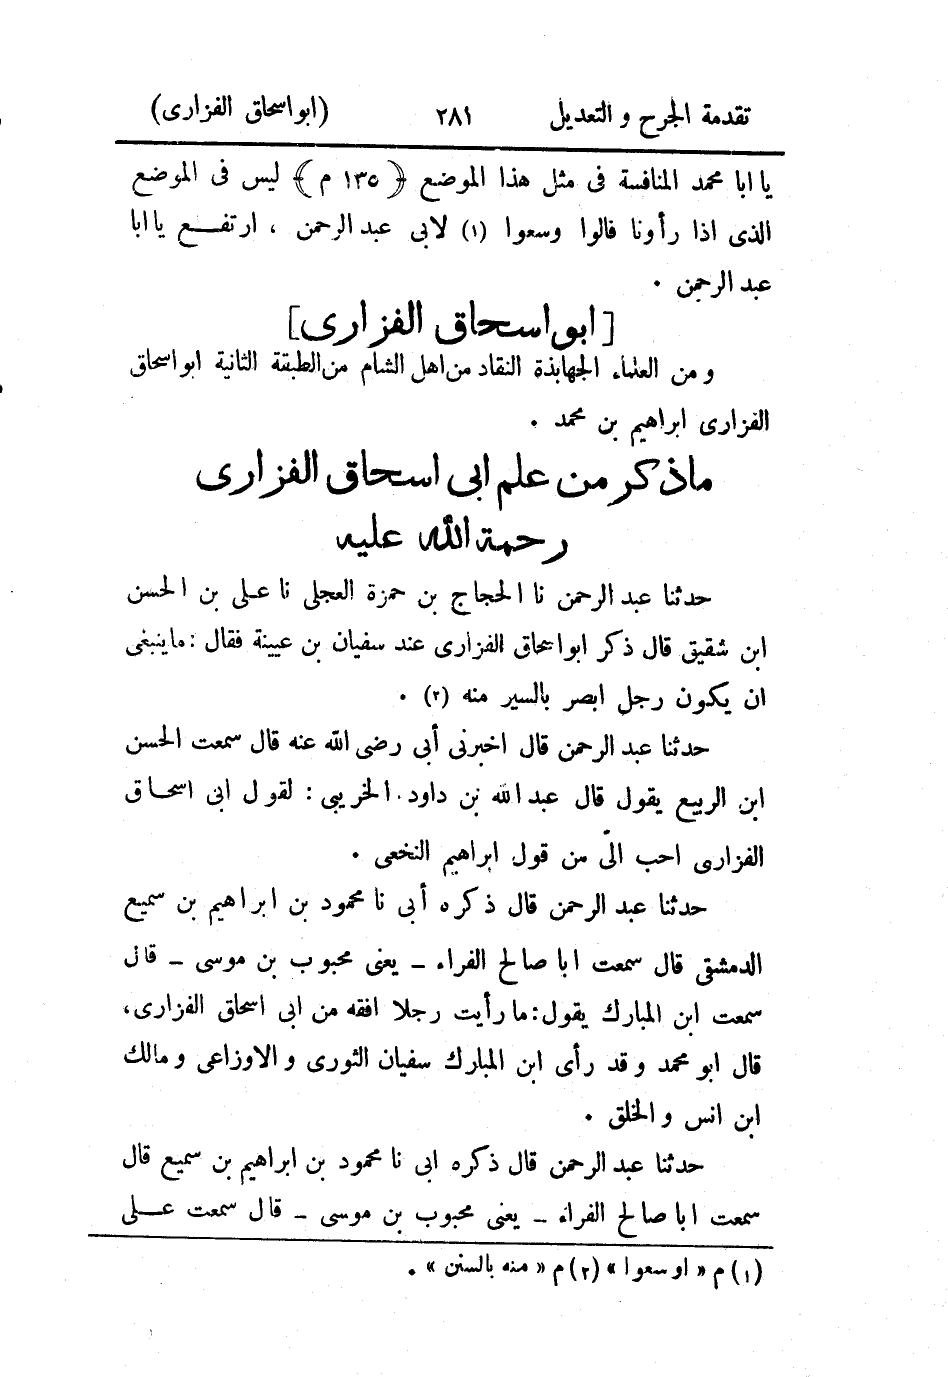 تقدمة الجرح و التعديل ٢٨١ (ابواسحاق الفزارى)
يا ابا محمد المنافسة فى مثل هذا الموضع ﴿ ١٣٥ م ﴾ ليس فى الموضع
الذى اذا رأونا قالوا وسعوا (١) لابى عبد الرحمن ، ارتفــع يا ابا
عبد الرحمن .
[ابواسحاق الفزارى]
و من العلماء الجهابذة النقاد من اهل الشام من الطبقة الثانية ابو اسحاق
الفزارى ابراهيم بن محمد .
ماذكر من علم ابى اسحاق الفزارى
رحمة الله عليه
حدثنا عبد الرحمن نا الحجاج بن حمزة العجلى نا عـلى بن الحسن
ابن شقيق قال ذكر ابواسحاق الفزارى عند سفيان بن عيينة فقال : ماينبغى
ان يكون رجل ابصر بالسير منه (٢) .
حدثنا عبد الرحمن قال اخبرنى أبى رضى الله عنه قال سمعت الحسن
ابن الربيع يقول قال عبد الله بن داود الخريبى : لقول ابى اسحـاق
الفزارى احب الىّ من قول ابراهيم النخعى .
حدثنا عبد الرحمن قال ذكره أبى نا محمود بن ابراهيم بن سميع
الدمشقى قال سمعت ابا صالح الفراء ـ يعنى محبوب بن موسى ـ قال
سمعت ابن المبارك يقول: ما رأيت رجلا افقه من ابى اسحاق الفزارى،
قال ابو محمد و قد رأى ابن المبارك سفيان الثورى و الاوزاعى و مالك
ابن انس و الخلق .
حدثنا عبد الرحمن قال ذكره ابى نا محمود بن ابراهيم بن سميع قال
سمعت ابا صالح الفراء ـ يعنى محبوب بن موسى ـ قال سمعت عــلى
(١) م « اوسعوا » (٢) م « منه بالسنن » .